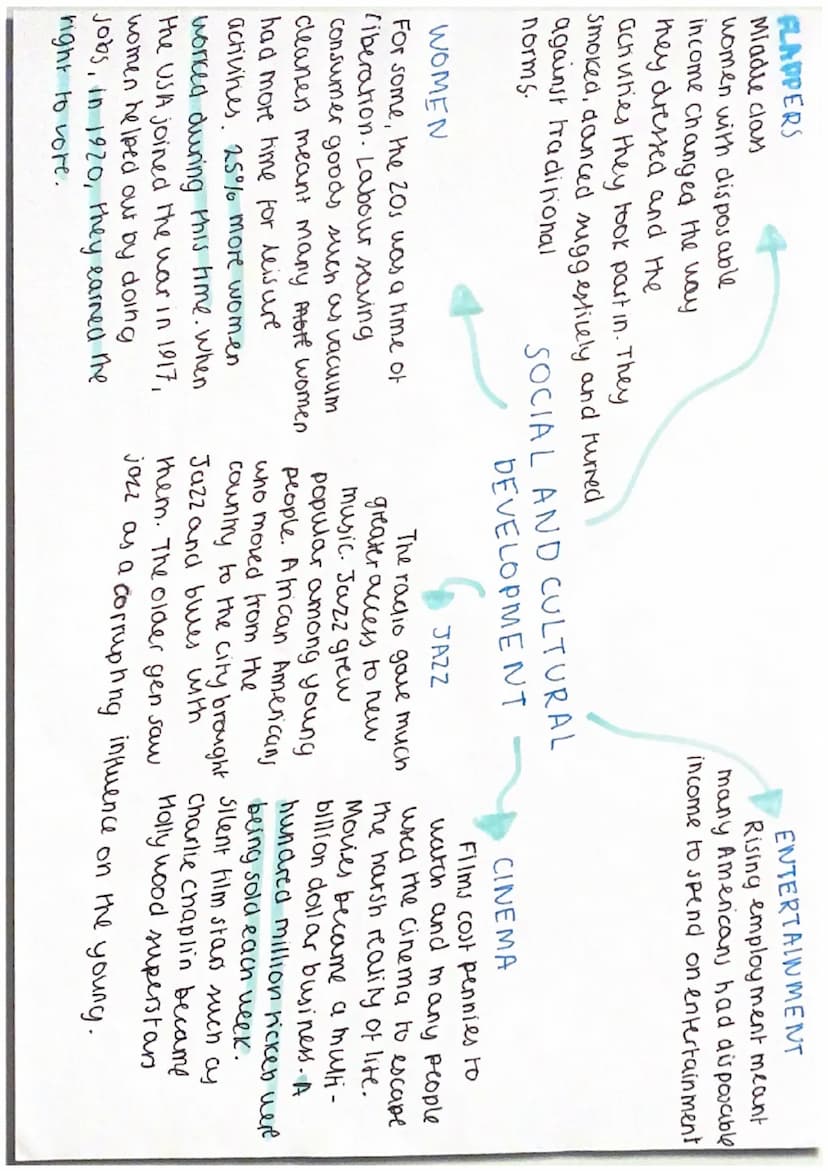 SOCIAL AND CULTURAL
DEVELOPMENT
FLAPPERS
Middle class
women with disposable
income changed the way
they dressed and the
activities they took part in. They
smoked, danced suggestively and turned
against traditional
norms.
ENTERTAINMENT
Rising employment meant
many Americans had disposable
income to spend on entertainment
WOMEN
For some, the 20s was a time of
liberation. Labour saving
consumer goods such as vacuum
cleaners meant many more women
had more time for leisure
activities. 25% more women
worked during this time. When
the USA joined the war in 1917,
women helped out by doing
jobs, in 1920, they earned the
right to vote.
JAZZ
The radio gave much
greater access to new
music. Jazz grew
popular among young
people. African Americans
who moved from the
country to the city brought
Jazz and blues with
them. The older gen saw
jazz as a corrupting influence on the young.
CINEMA
Films cost pennies to
watch and many people
used the cinema to escape
the harsh reality of life.
Movies became a multi-
billion dollar business. A
hundred million tickets were
being sold each week.
Silent film stars such as
Charlie Chaplin became
Hollywood superstars